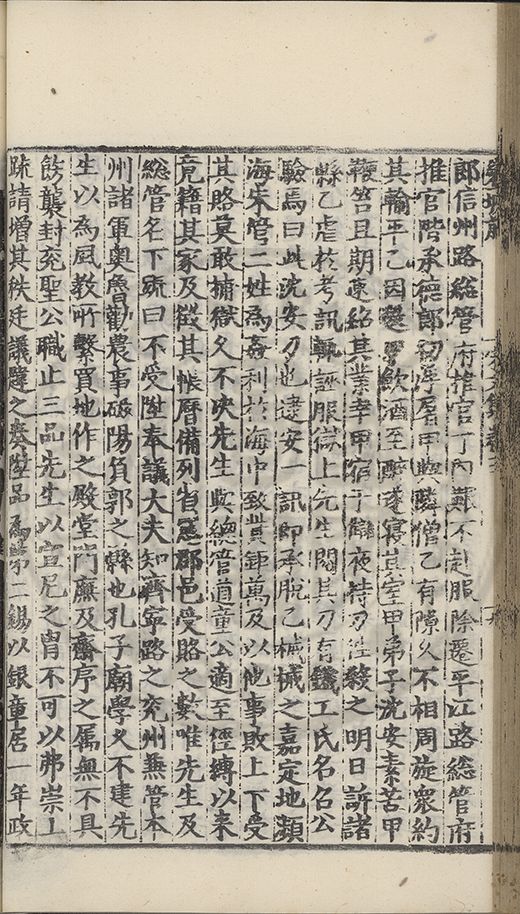 郎信州路緫管府推官丁內艱不赴服除遷平江路総管府
推官階承德郎初浮屠甲與隣僧乙有隙久不相周旋衆約
其輸平乙因邀甲飲酒至醉遂寢其室甲弟子沈安素苦甲
鞭笞且期速紹其業幸甲宿于隣夜持刃徃殺之明日訴諸
縣乙虐於考訊輒誣服獄上先生閱其刃有鐵工氏名召公
驗焉曰此沈安刀也逮安一訊即承脫乙械械之嘉定地瀕
海朱管二姓為姦利於海中致貲鉅萬及以他事敗上下受
其賂莫敢捕獄久不決先生與總管道童公適至徑縛以來
竟籍其家及從其帳曆備列省憲郡邑受賂之數唯先生及
緫管名下疏曰不受陞奉議大夫知濟寧路之兖州兼管本
州諸軍奧魯勸農事磁陽負郭之縣也孔子廟學久不建先
生以為風教所繫買地作之殿堂門廡及齋序之属無不具
餝襲封兖聖公職止三品先生以宣尼之胄不可以弗崇上
疏請增其秩廷議韙之奏陞品為第二錫以銀章居一年政